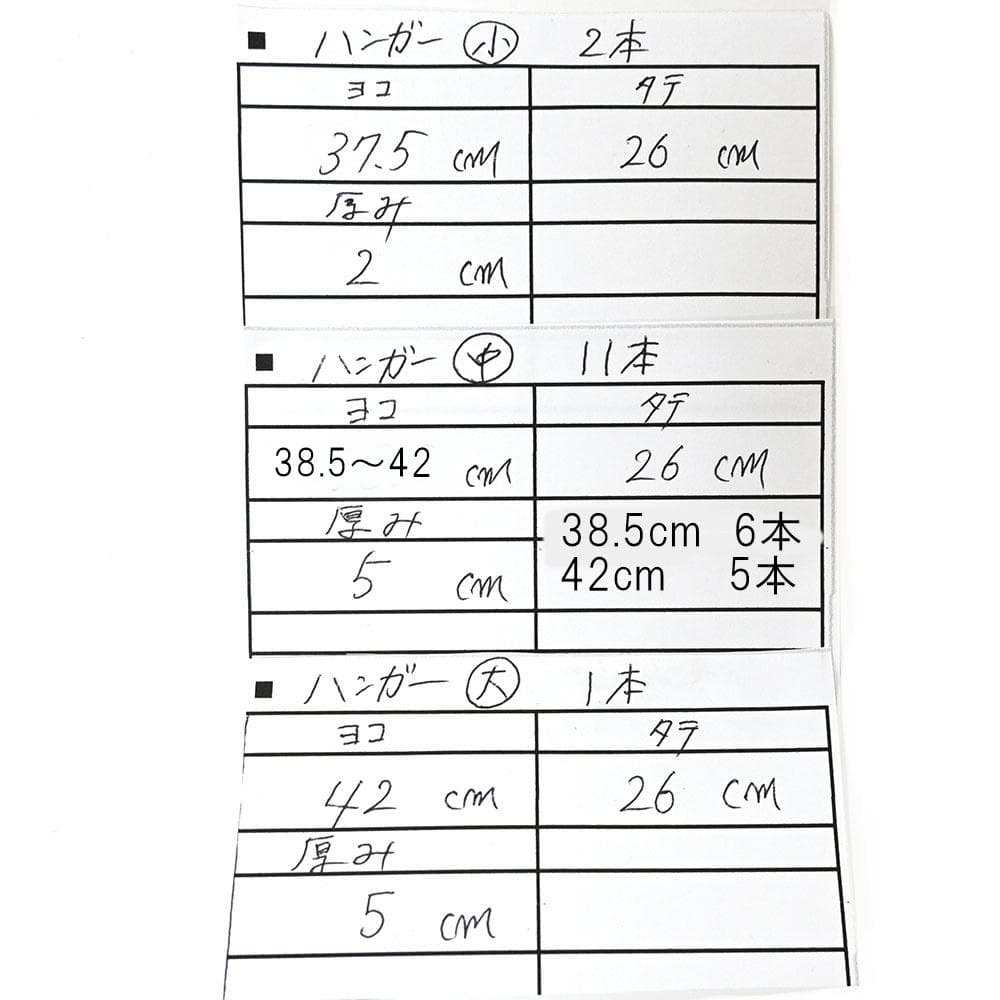 ■ ハンガー 小 2本
ヨコ タテ
37.5 cm 26 cm
厚み
2 cm
■ ハンガー 中 11本
ヨコ タテ
38.5～42 cm 26 cm
厚み 38.5cm 6本
5 cm 42cm 5本
■ ハンガー 大 1本
ヨコ タテ
42 cm 26 cm
厚み
5 cm